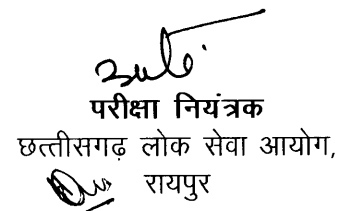 परीक्षा नियंत्रक
छत्तीसगढ़ लोक सेवा आयोग,
रायपुर